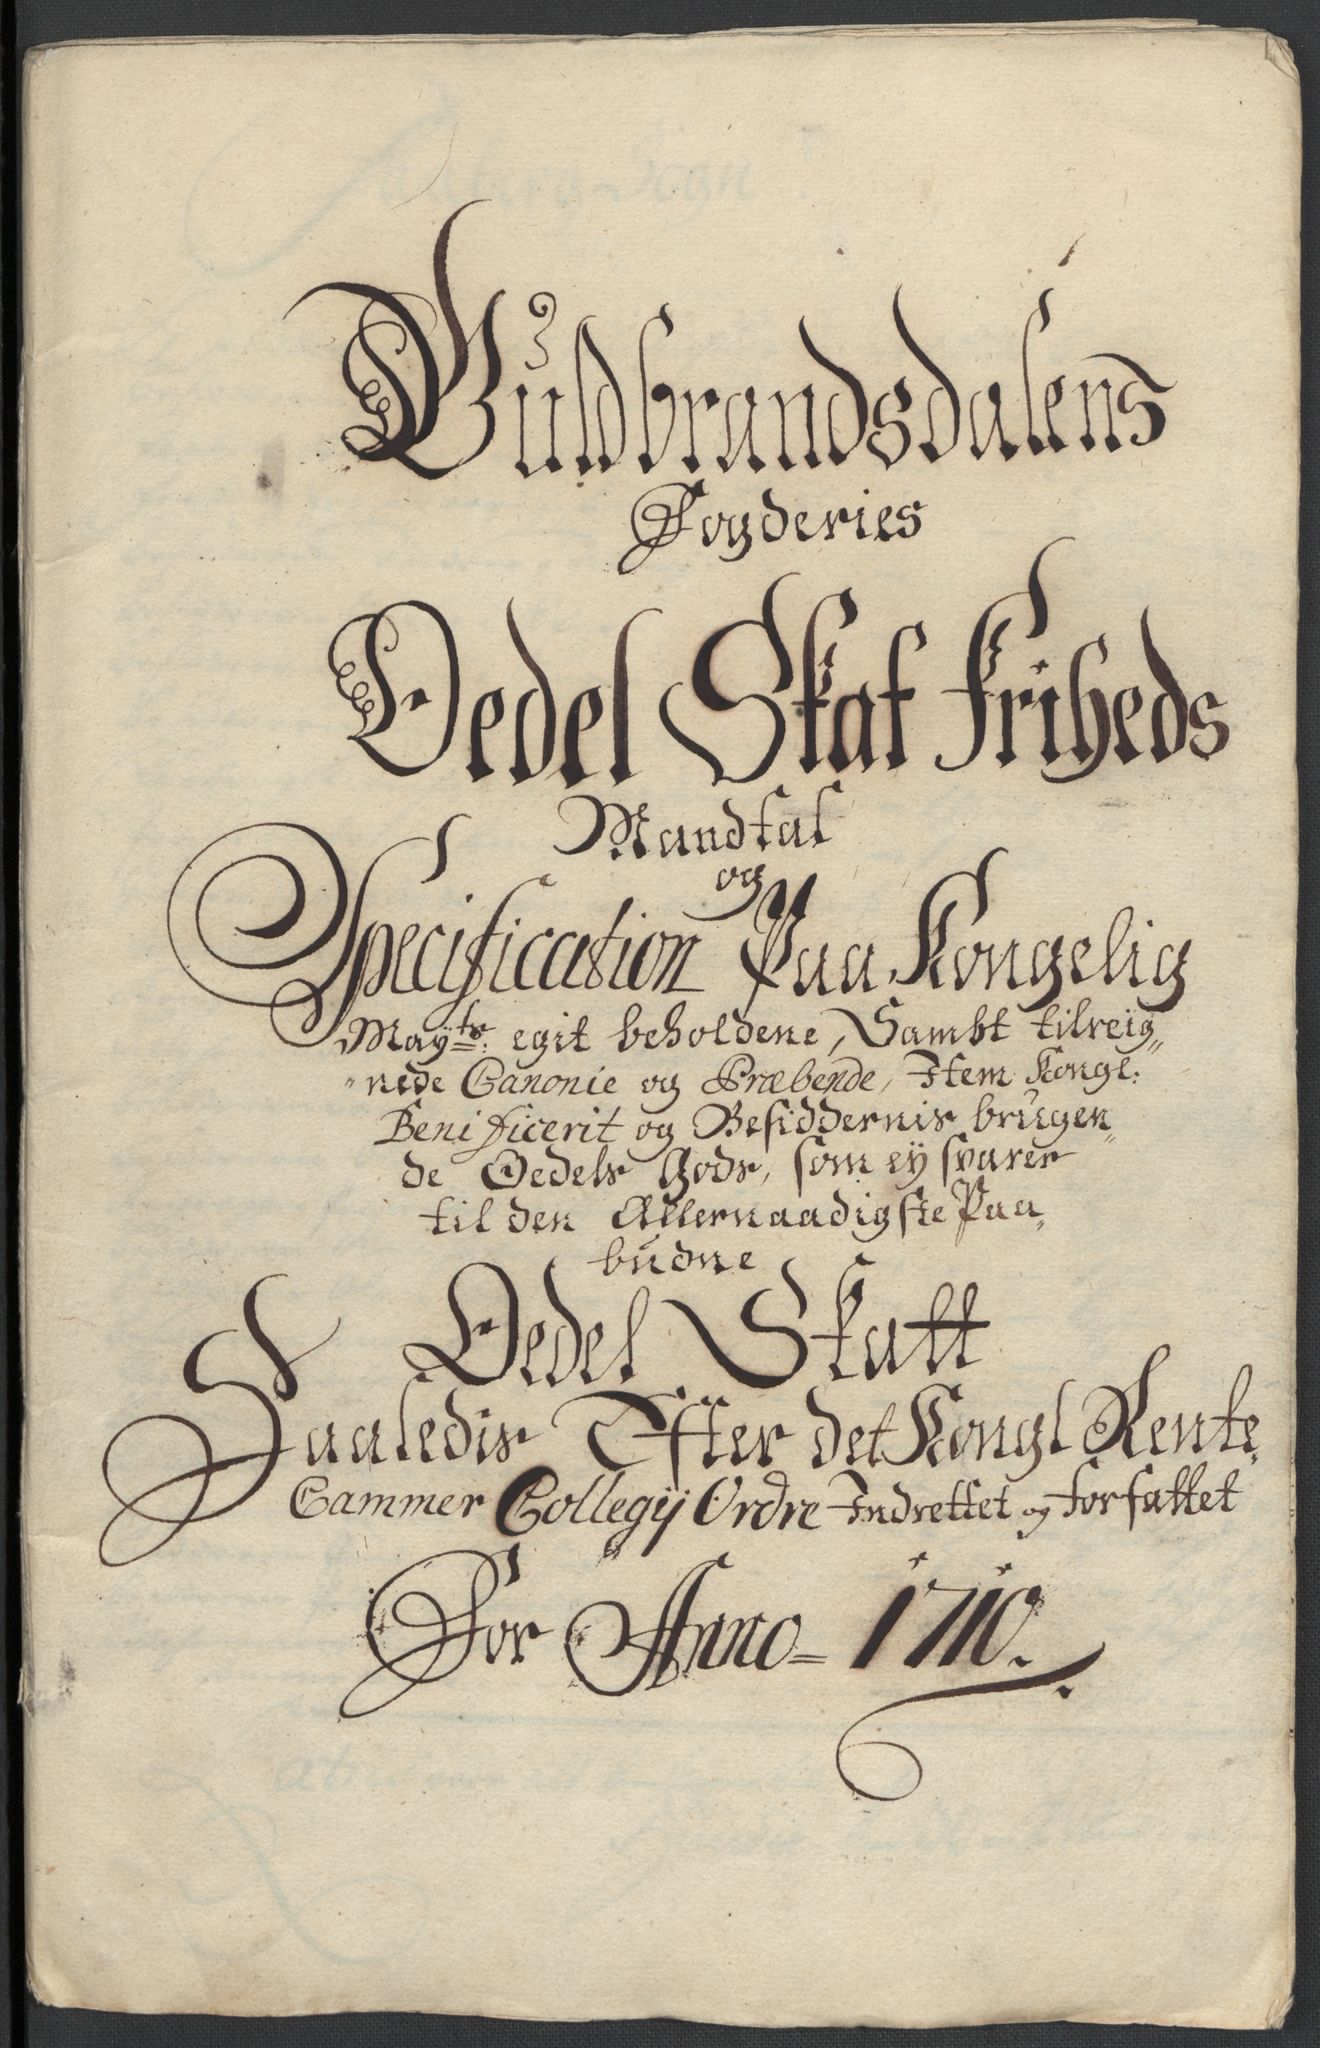 Guldbrandsdalens
Fogderies
Oedel Skat Friheds
Mandtal
og
Specification Paa Kongelig
Mayts: egit beholdene, Sambt tilreig„
„nede Canonie og Præbende, Item Kongl:
Benificerit og Besiddernis brugen„
de Oedels Gods, som ey svarer
til den Allernaadigste Paa„
budne
Oedel Skatt
Saaledis Efter det Kongl Rente„
Cammer Collegij Ordre Indrettet og forfattet
For Anno= 1710.